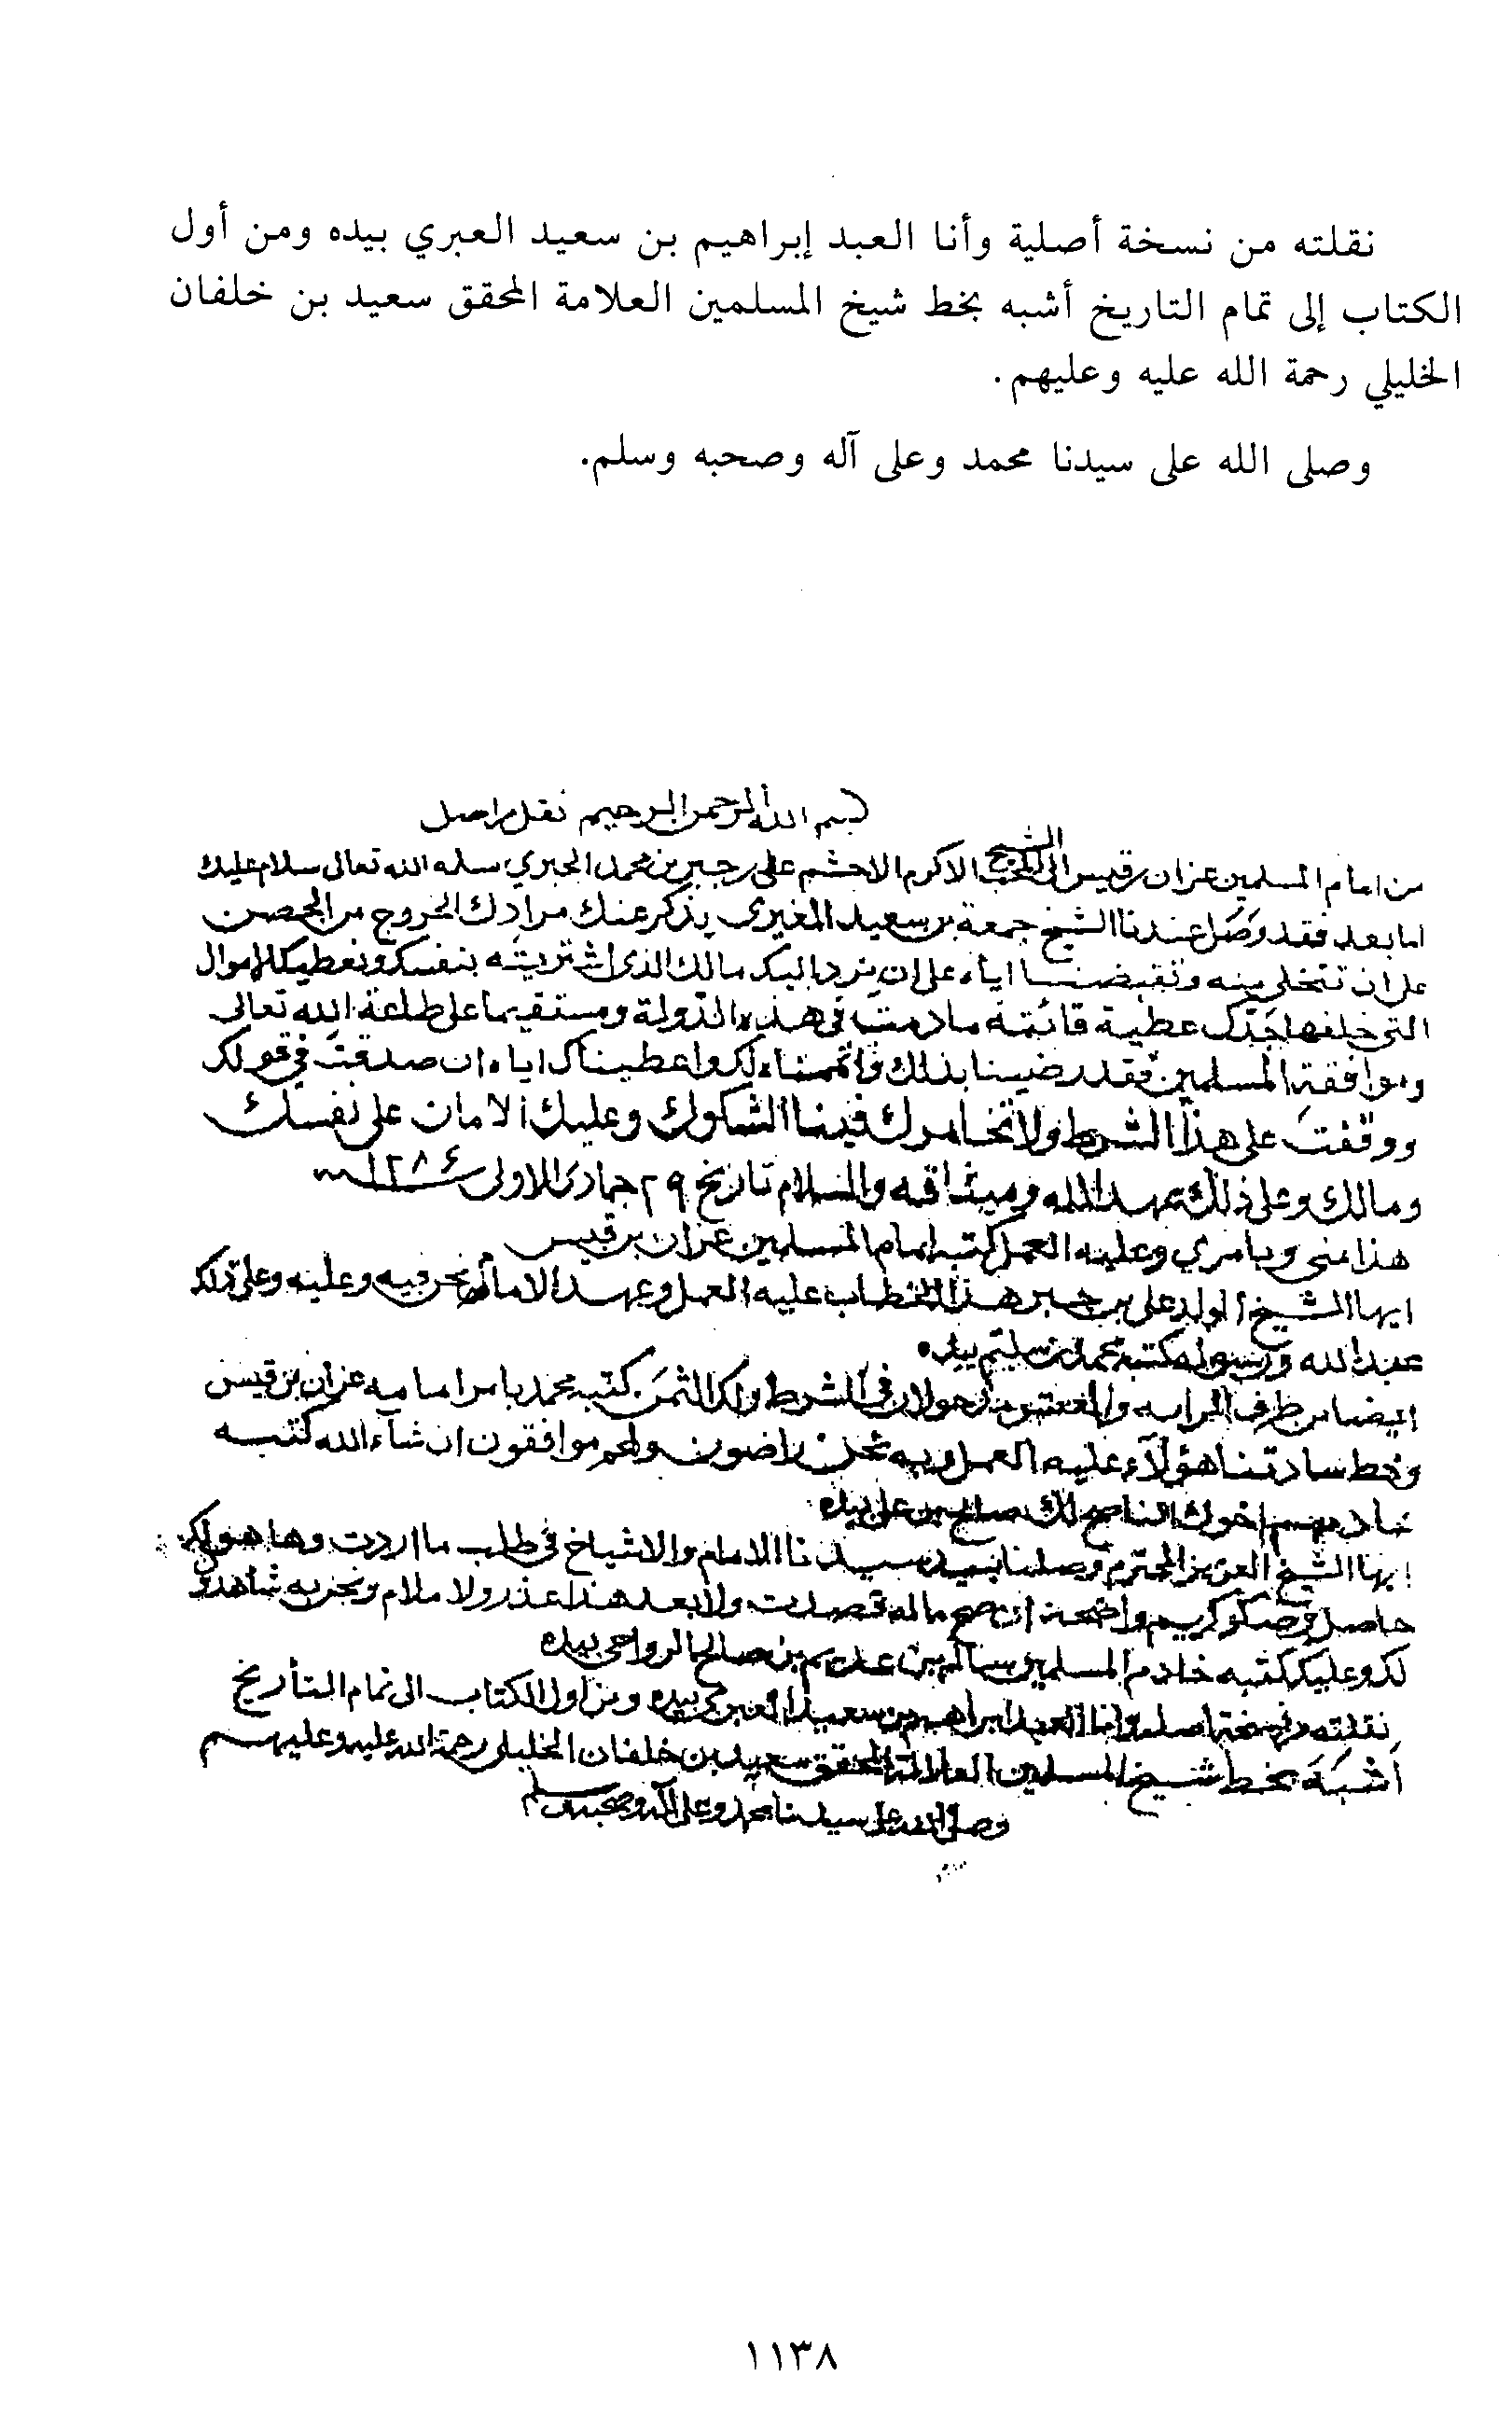 نقلته من نسخة أصلية وأنا العبد إبراهيم بن سعيد العبري بيده ومن أول
الكتاب إلى تمام التاريخ أشبه بخط شيخ المسلمين العلامة المحقق سعيد بن خلفان
الخليلي رحمة الله عليه وعليهم.
وصلى الله على سيدنا محمد وعلى آله وصحبه وسلم.
بسم الله الرحمن الرحيم نقل من اصل
من امام المسلمين عزان بن قيس الى الشيخ المحب الاكرم الاحشم علي بن جبر بن محمد الجبري سلمه الله تعالى سلام عليك
اما بعد فقد وصل عندنا الشيخ جمعة بن سعيد المغيري يذكر عنك مرادك الخروج من الحصن
على ان تتخلى منه وتقبضنا اياه على ان نرد اليك مالك الذي اشتريته بنفسك ونعطيك الاموال
التي خلفها جدك عطية قائمة ما دمت في هذه الدولة ومستقيما على طاعة الله تعالى
وموافقة المسلمين فقد رضينا بذلك واتممناه لك واعطيناك اياه ان صدقت في قولك
ووقفت على هذا الشرط ولا تخامرك فينا الشكوك وعليك الامان على نفسك
ومالك وعلى ذلك عهد الله وميثاقه والسلام تاريخ ٢٩ جمادى الاولى سنة ١٢٨٤
هذا مني وبامري وعليه العمل كتبه امام المسلمين عزان بن قيس
ايها الشيخ الولد علي بن جبر هذا الخطاب عليه العمل وعهد الامام نحن فيه وعليه وعلى ذلك
عهد الله ورسوله كتبه محمد بن سليم بيده
ايضا من طرف البرابه والمعتمرة في الشرط ولك الثمن كتبه محمد بامر امامه عزان بن قيس
وخط سادتنا هؤلاء عليه العمل وبه نحن راضون ولهم موافقون ان شاء الله كتبه
خادمهم اخوك الناصح لك صالح بن علي بيده
ايها الشيخ العزيز المحترم وصلنا سيدنا الامام والاشياخ في طلب ما اردت وها هو لك
حاصل واضحة ان صح ما له قصدت ولا بعد هذا عذر ولا ملام ونحن به شاهدون
لك وعليك كتبه خادم المسلمين سالم بن عديم بن صالح الرواحي بيده
نقلته من نسخة اصلية وانا العبد ابراهيم بن سعيد العبري بيده ومن اول الكتاب الى تمام التأريخ
اشبه بخط شيخ المسلمين العلامة المحقق سعيد بن خلفان الخليلي رحمة الله عليه وعليهم
وصلى الله على سيدنا محمد وعلى آله وصحبه وسلم
١١٣٨